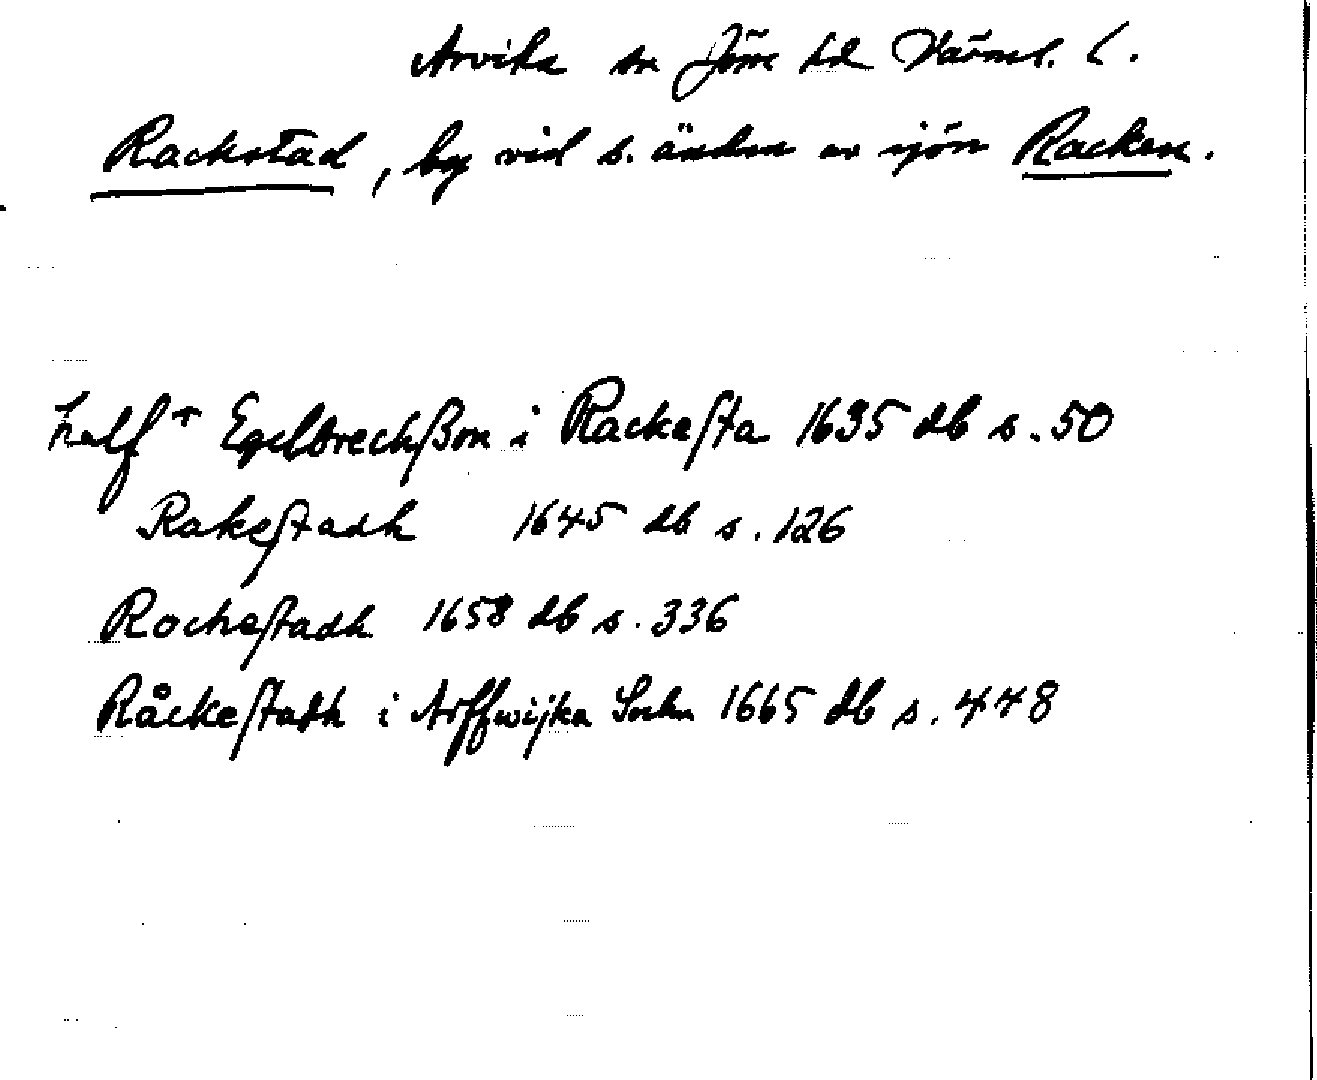 Arvika sn Jösse hd Värml. l.
Rackstad, by vid s. änden av sjön Racken.
Engelbrechßon i Rackesta 1635 db s. 50
Rakestadh 1645 db s. 126
Rockestadh 1658 db s. 336
Råckestadh i Arffwijka Sochn 1665 db s. 448